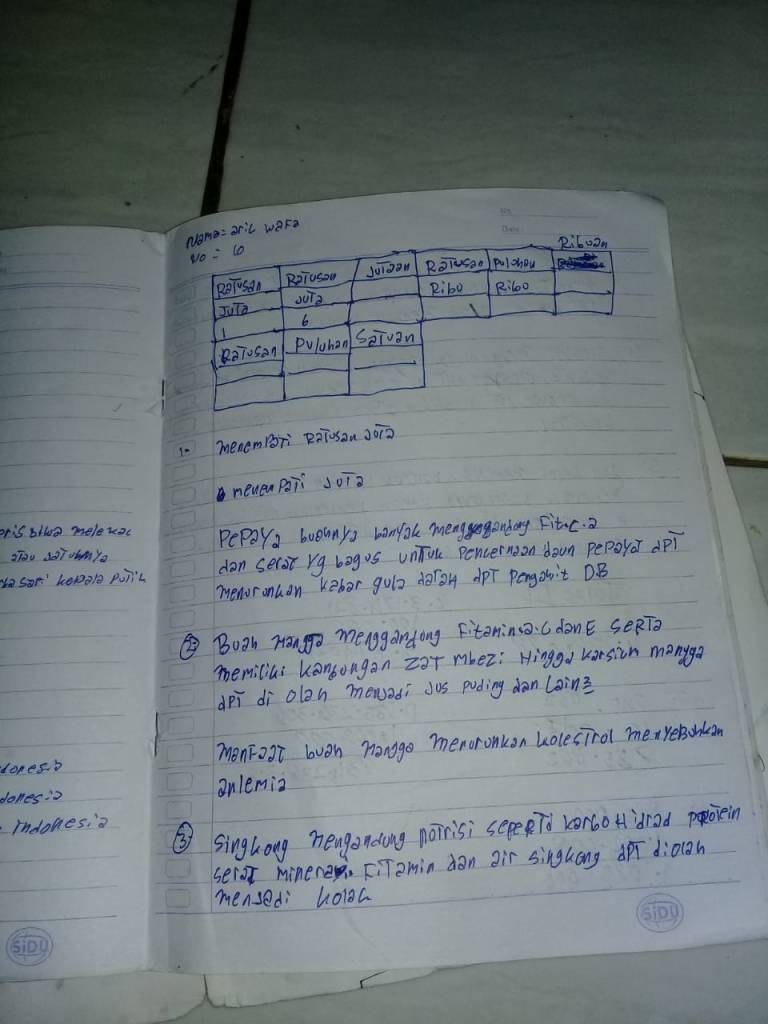 No
Date
Nama = aril wafa
no = 6
Ribuan
Ratusan Ratusan Jutaan Ratusan Puluhan
Juta Juta Ribu Ribu
1 6
Ratusan Puluhan Satuan
1- menempati Ratusan Juta
menempati Juta
Pepaya buahnya banyak mengandung Fit.c.a
dan serat yg bagus untuk Pencernaan daun pepaya dPT
menurunkan kabar gula darah dPT Pengakit DB
2 Buah Mangga Menggandung Fitamin.a.c dan E serta
memiliki kanbungan zat mbezi Hingga karsium mangga
dPT di olah menjadi Jus Puding dan Lain2
Manfaat buah Mangga menurunkan kolestrol menyebuhkan
anlemia
3 Singkong Mengandung notrisi seperti karbo Hidrad protein
serat mineral. Fitamin dan air singkong dPT diolah
menjadi kolak
SiDU
atau jatuhnya
kepala putih
donesia
donesia
indonesia
SiDU